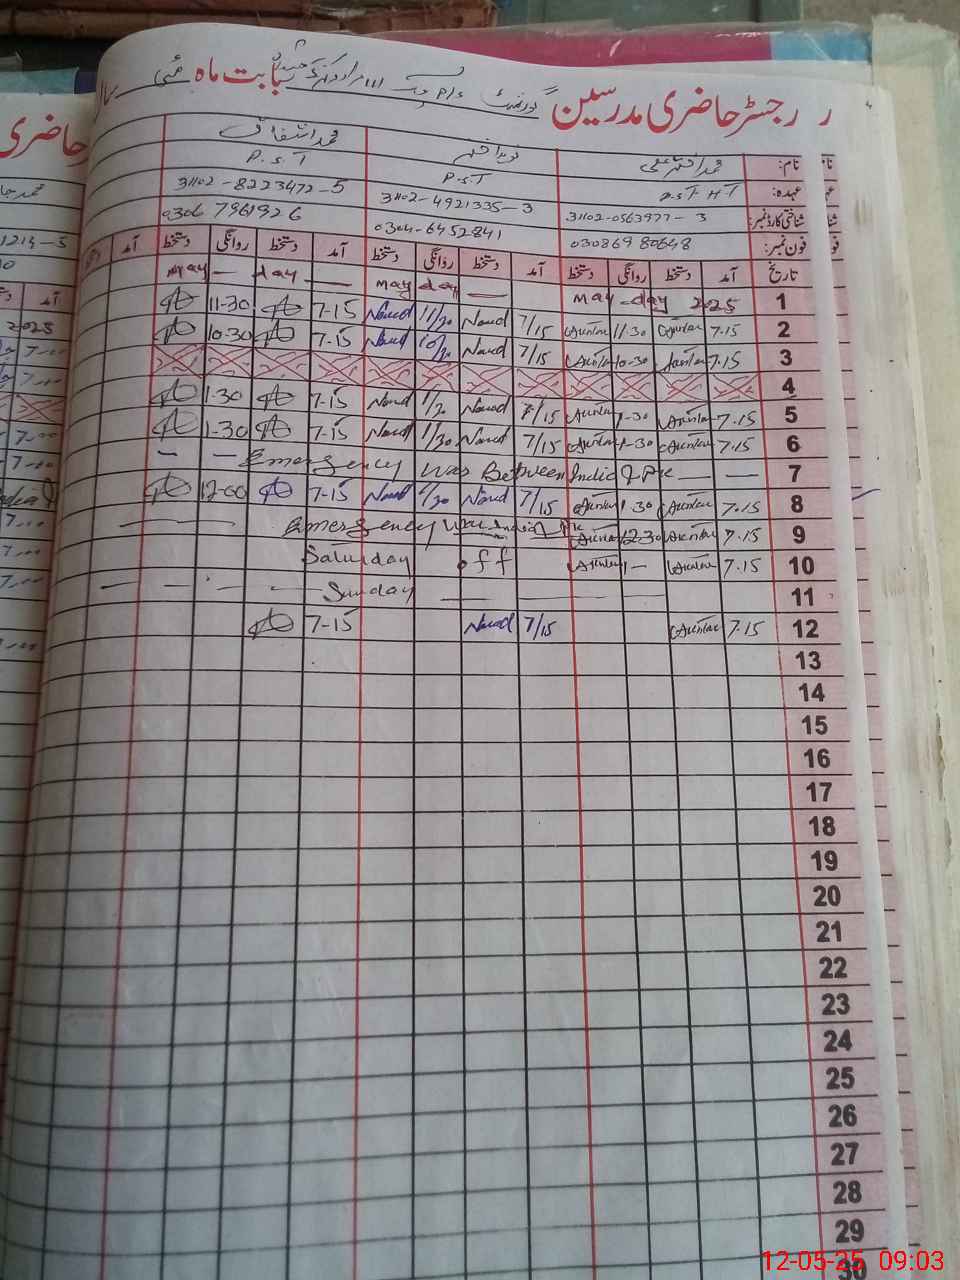 رجسٹر حاضری مدرسین گورنمنٹ P/S چک 111 مراد بابت ماہ مئی
نام: محمد اختر علی نوید اختر محمد اشفاق
عہدہ: P.S.T H.T P.S.T P.S.T
شناختی کارڈ نمبر: 31102-0563977-3 31102-4921335-3 31102-8223472-5
فون نمبر: 03086980648 0304-6452841 0306 7961926
تاریخ آمد دستخط روانگی دستخط آمد دستخط روانگی دستخط آمد دستخط روانگی دستخط آمد
1 May - day 2025 may day — may — day —
2 7.15 11.30 7/15 Naved 11/30 Naved 7-15 11-30
3 7.15 10-30 7/15 Naved 10/30 Naved 7-15 10-30
4
5 7.15 1-30 7/15 Naved 1/30 Naved 7-15 1-30
6 7.15 1-30 7/15 Naved 1/30 Naved 7-15 1-30
7 — — Emergency War Between India & Pak — —
8 7.15 1.30 7/15 Naved 1/30 Naved 7-15 12-00
9 7.15 12-30 Emergency War India Pak
10 7.15 1- Saturday off
11 — — — — Sunday — — — —
12 7.15 7/15 Naved 7-15
13
14
15
16
17
18
19
20
21
22
23
24
25
26
27
28
29
30
حاضری
1214-5
2025
12-05-25 09:03